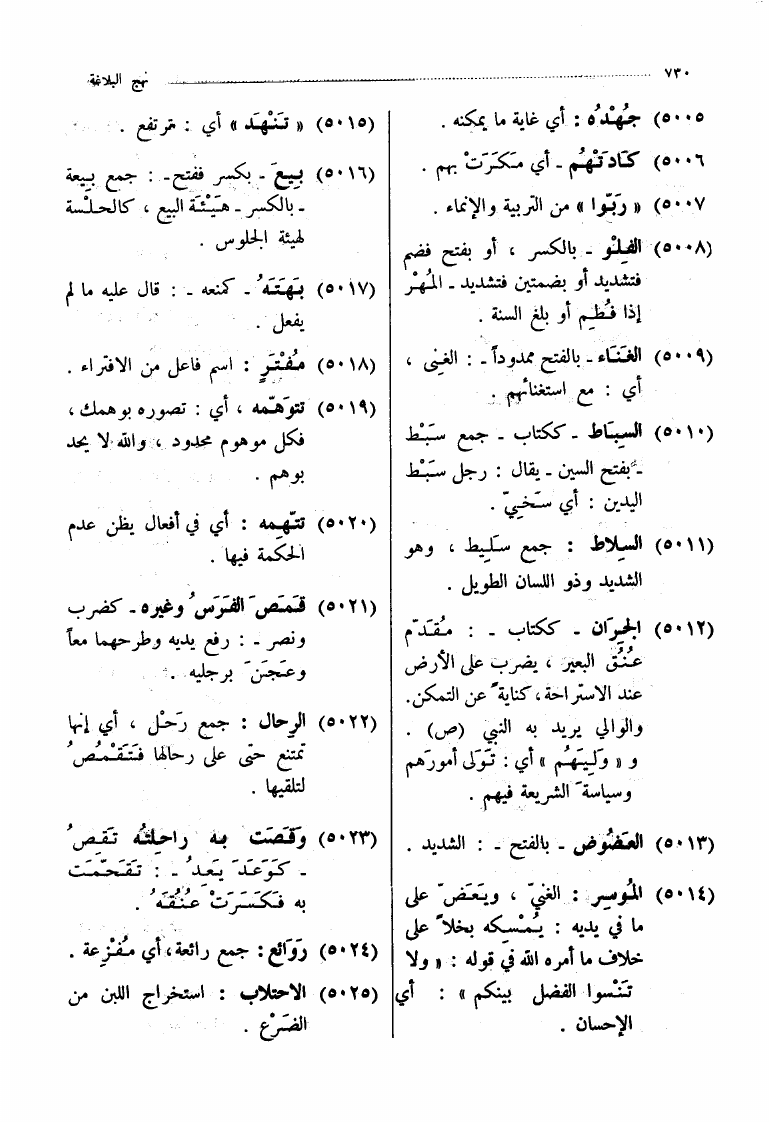 ٧٣٠ نهج البلاغة
(٥٠٠٥) جُهْدُه : أي غاية ما يمكنه .
(٥٠٠٦) كَادَتْهُم ـ أي مَكَرَتْ بهم .
(٥٠٠٧) « رَبَّوا » من التربية والإنماء .
(٥٠٠٨) الفِلْو ـ بالكسر ، أو بفتح فضم
فتشديد أو بضمتين فتشديد ـ المُهْر
إذا فُطِم أو بلغ السنة .
(٥٠٠٩) الغَنَاء ـ بالفتح ممدوداً ـ : الغنى ،
أي : مع استغنائهم .
(٥٠١٠) السِبَاط ـ ككتاب ـ جمع سَبْط
ـ بفتح السين ـ يقال : رجل سَبْط
اليدين : أي سَخيّ .
(٥٠١١) السِلاط : جمع سَلِيط ، وهو
الشديد وذو اللسان الطويل .
(٥٠١٢) الجِرَان ـ ككتاب ـ : مُقَدَّم
عُنُق البعير ، يضرب على الأرض
عند الاستراحة ، كناية عن التمكن .
والوالي يريد به النبي (ص) .
و « وَلِيَهُم » أي : تَوَلى أمورَهم
وسياسة الشريعة فيهم .
(٥٠١٣) العَضُوض ـ بالفتح ـ : الشديد .
(٥٠١٤) المُوسِر : الغنيّ ، ويَعَضّ على
ما في يديه : يُمْسكه بخلاً على
خلاف ما أمره الله في قوله : « ولا
تَنْسوا الفضل بينكم » : أي
الإحسان .
(٥٠١٥) « تَنْهَد » أي : ترتفع .
(٥٠١٦) بِيَعَ ـ بكسر ففتح ـ : جمع بِيعة
ـ بالكسر ـ هَيْئَة البيع ، كالجلْسة
لهيئة الجلوس .
(٥٠١٧) بَهَتَهُ ـ كمنعه ـ : قال عليه ما لم
يفعل .
(٥٠١٨) مُفْتَرٍ : اسم فاعل من الافتراء .
(٥٠١٩) تتوَهّمه ، أي : تصوره بوهمك ،
فكل موهوم محدود ، والله لا يحد
بوهم .
(٥٠٢٠) تتّهمه : أي في أفعال يظن عدم
الحكمة فيها .
(٥٠٢١) قَمَصَ الفَرَسُ وغيره ـ كضرب
ونصر ـ : رفع يديه وطرحهما معاً
وعَجَنَ برجليه .
(٥٠٢٢) الرِحال : جمع رَحْل ، أي إنها
تمتنع حتى على رحالها فَتَقْمُصُ
لتلقيها .
(٥٠٢٣) وَقَصَت به راحِلتُه تَقِصُ
ـ كَوَعَدَ يَعدُ ـ : تَقَحّمَت
به فكَسَرَتْ عُنُقَهُ .
(٥٠٢٤) رَوَائع : جمع رائعة ، أي مُفْزِعة .
(٥٠٢٥) الاحتلاب : استخراج اللبن من
الضَرْع .